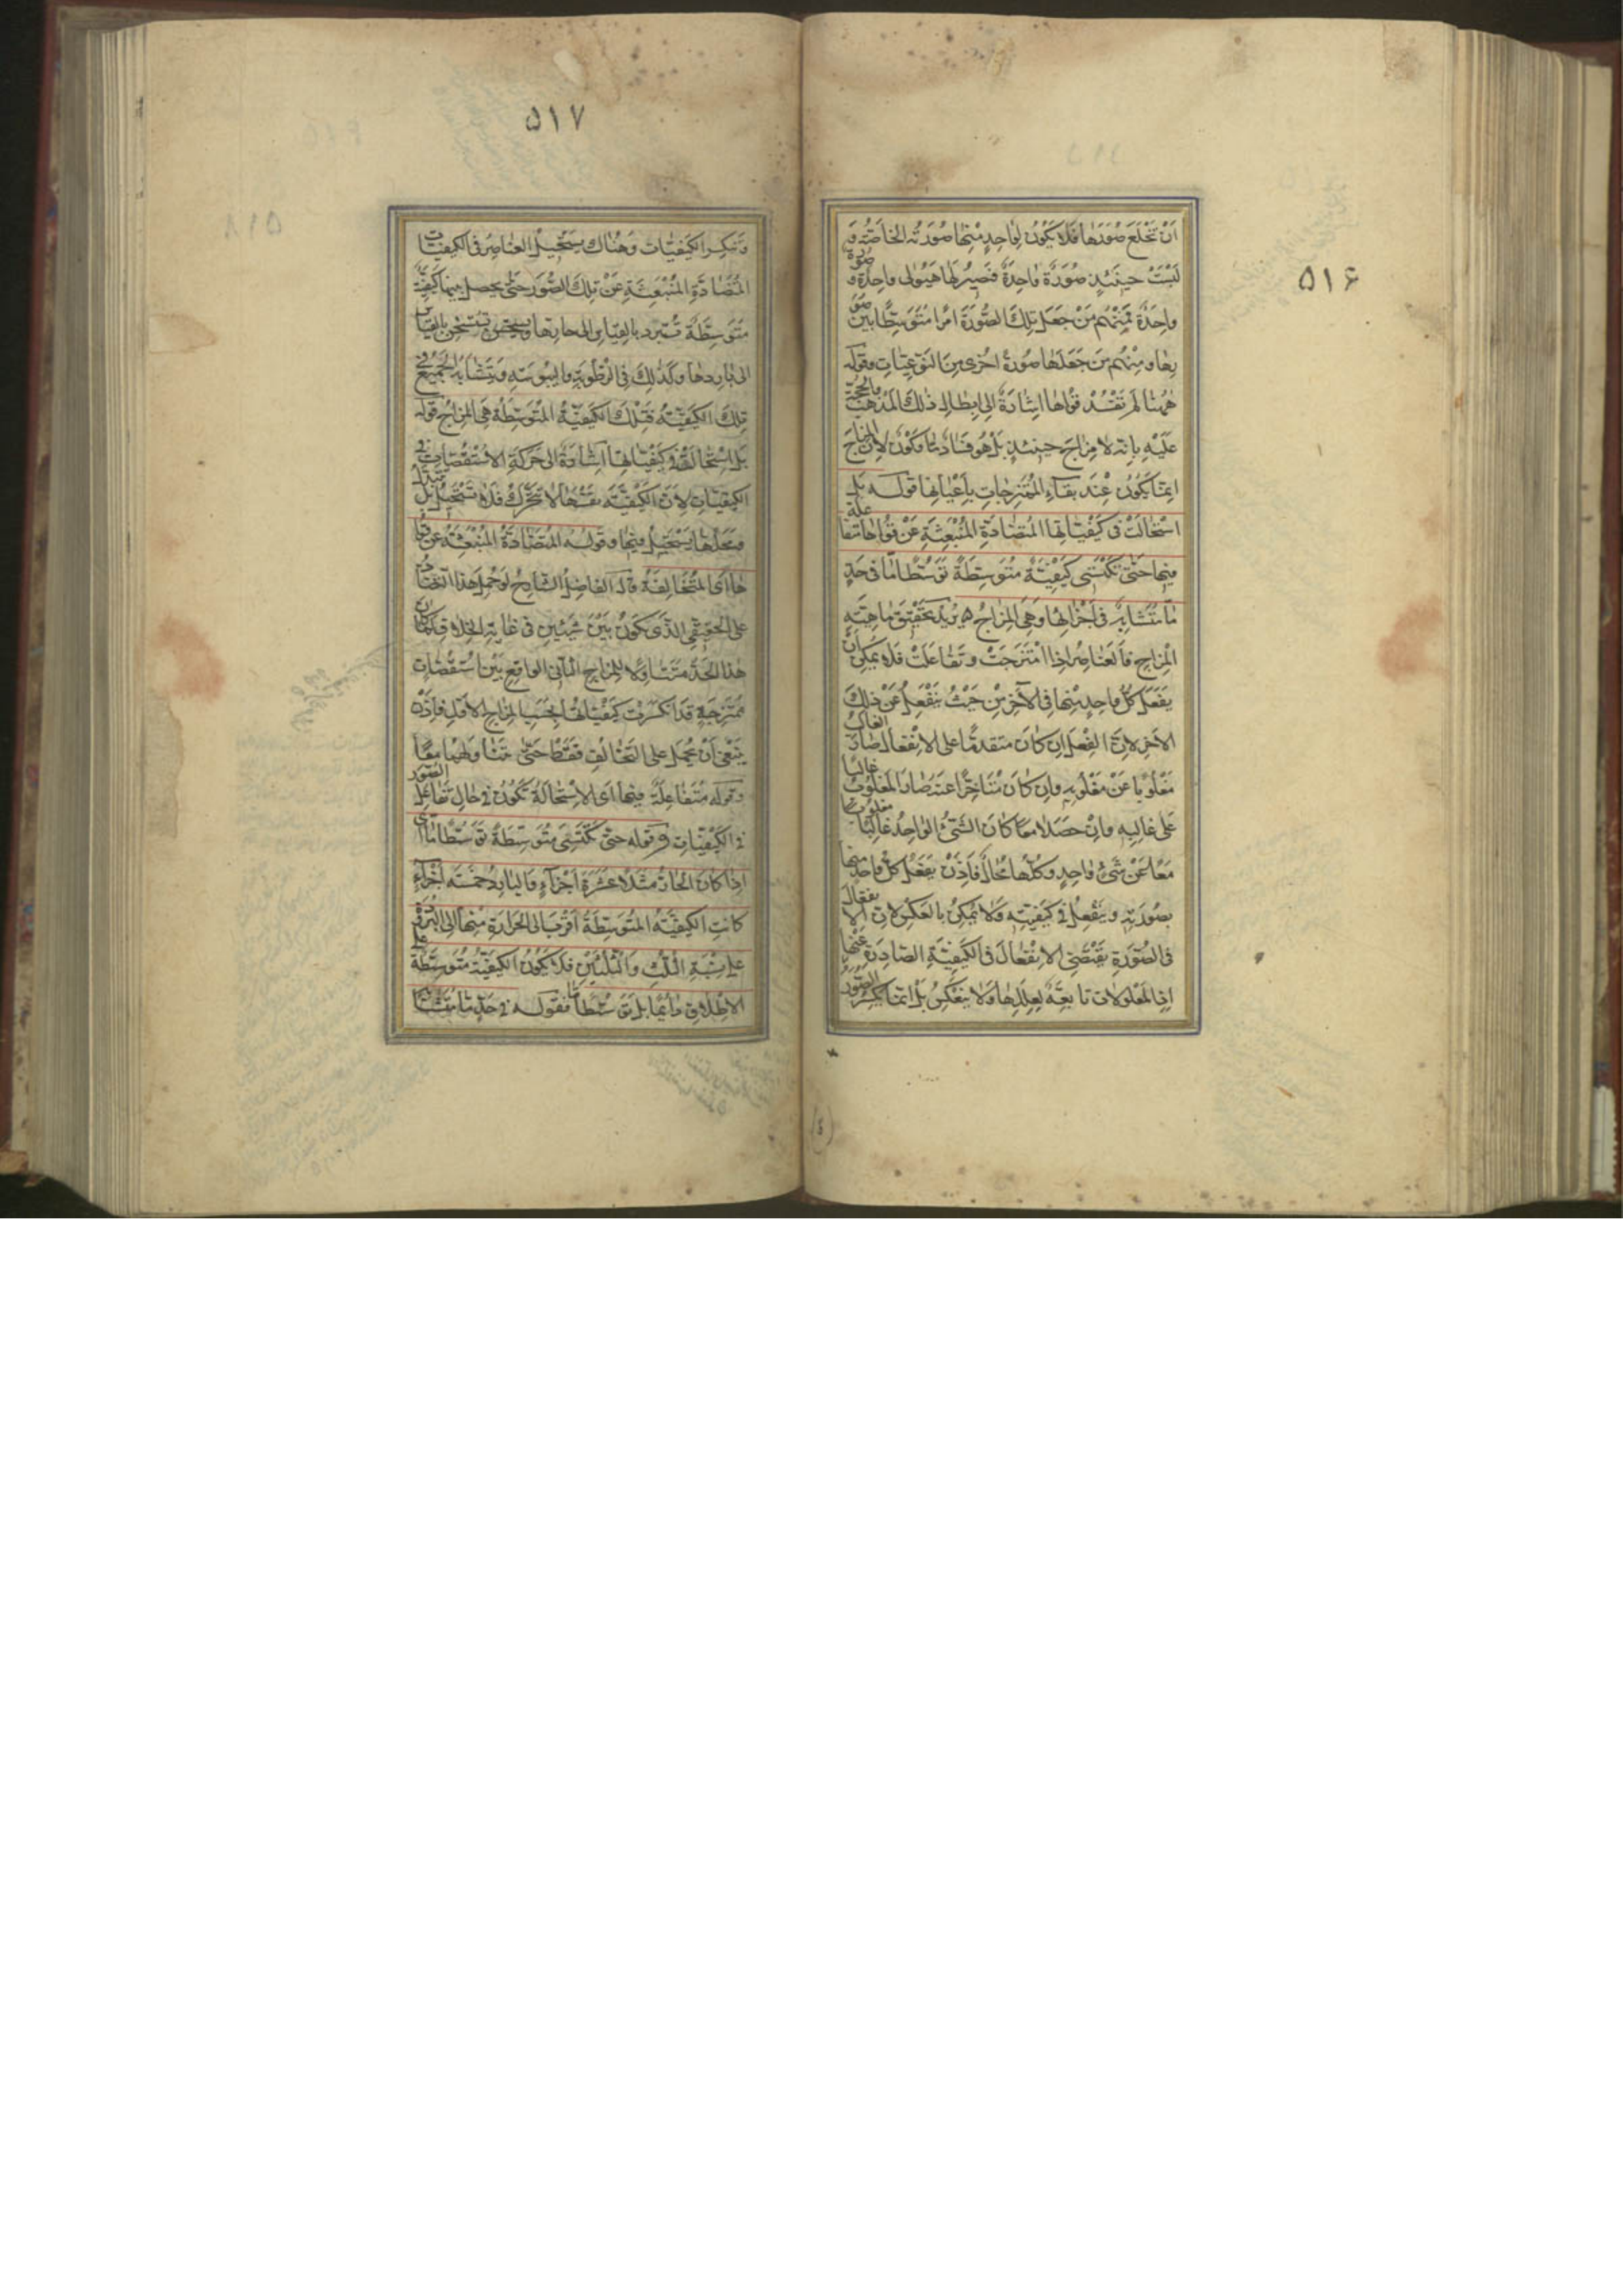 ٥١۶
ان تخلع صورها فلا يكون لواحد منها صورته الخاصّة و
لبست حينئذ صورة واحدة فصير لها هيولى واحدة و صورة
واحدة فمنهم من جعل تلك الصّورة امرا متوسّطا بين صو
رها و منهم من جعلها صورة اخرى من النّوعيّات و قوله
ههنا لم تفسد قواها اشارة الى ابطال ذلك المذهب و الحجّة
عليه بانّه لا مزاج حينئذ بل هو فساد ما و كون لانّ المزاج
انما يكون عند بقاء الممتزجات باعيانها قوله بل
استحالت فى كيفيّاتها المتضادّة المنبعثة عن قواها متفاعلة
فيها حتّى تكتسى كيفيّة متوسّطة توسّطا مّا فى حدّ
مّا متشابه فى اجزائها و هى المزاج يريد تحقيق ماهيّة
المزاج فالعناصر اذا امتزجت و تفاعلت فلا يمكن ان
يفعل كلّ واحد منها فى الآخر من حيث ينفعل عن ذلك
الآخر لانّ الفعل ان كان متقدّما على الانفعال صار الغالب
مغلوبا عن مغلوبه و ان كان متاخّرا عنه صار المغلوب غالبا
على غالبه و ان حصلا معا كان الشّىء الواحد غالبا مغلوبا
معا عن شىء واحد و كلّها محال فاذن يفعل كلّ واحد منها
بصورته و ينفعل فى كيفيّته و لا يمكن بالعكس لانّ الانفعال
فى الصّورة يقتضى الانفعال فى الكيفيّة الصّادرة عنها
اذ المعلولات تابعة لعللها و لا ينعكس بل انما يكسر الصّور
٥١٧
و تنكسر الكيفيّات و هناك يستحيل العناصر فى الكيفيّات
المتضادّة المنبعثة عن تلك الصّور حتّى يحصل فيها كيفيّة
متوسّطة تستبرد بالقياس الى حارّها و تستسخن بالقياس
الى باردها و كذلك فى الرّطوبة و اليبوسة و يتشابه الجميع فى
تلك الكيفيّة فتلك الكيفيّة المتوسّطة هى المزاج قوله
بل استحالت فى كيفيّاتها اشارة الى حركة الاستقصّات فى
الكيفيّات لانّ الكيفيّة نفسها لا تتحرّك فلا تستحيل بل تتبدّل
و محلّها يستحيل فيها و قوله المتضادّة المنبعثة عن قوا
ها اى المتخالفة قال الفاضل الشّارح لو حمل هذا التّضادّ
على الحقيقى الّذى يكون بين شيئين فى غاية الخلاف لما كان
هذا الحدّ متناولا للمزاج الثّانى الواقع بين استقصّات
ممتزجة قد انكسرت كيفيّاتها بحسب المزاج الاوّل فاذن
ينبغى ان يحمل على التّخالف فقط حتّى يتناولهما معا
و قوله متفاعلة فيها اى الاستحالة تكون فى حال تفاعل الصّور
فى الكيفيّات و قوله حتّى تكتسى متوسّطة توسّطا مّا اى
اذا كان الحارّ مثلا عشرة اجزاء و البارد خمسة اجزاء
كانت الكيفيّة المتوسّطة اقرب الى الحرارة منها الى البرودة
على نسبة الثّلث و الثّلثين فلا يكون الكيفيّة متوسّطة على
الاطلاق دائما بل توسّطا مّا فقوله فى حدّ مّا متشابه